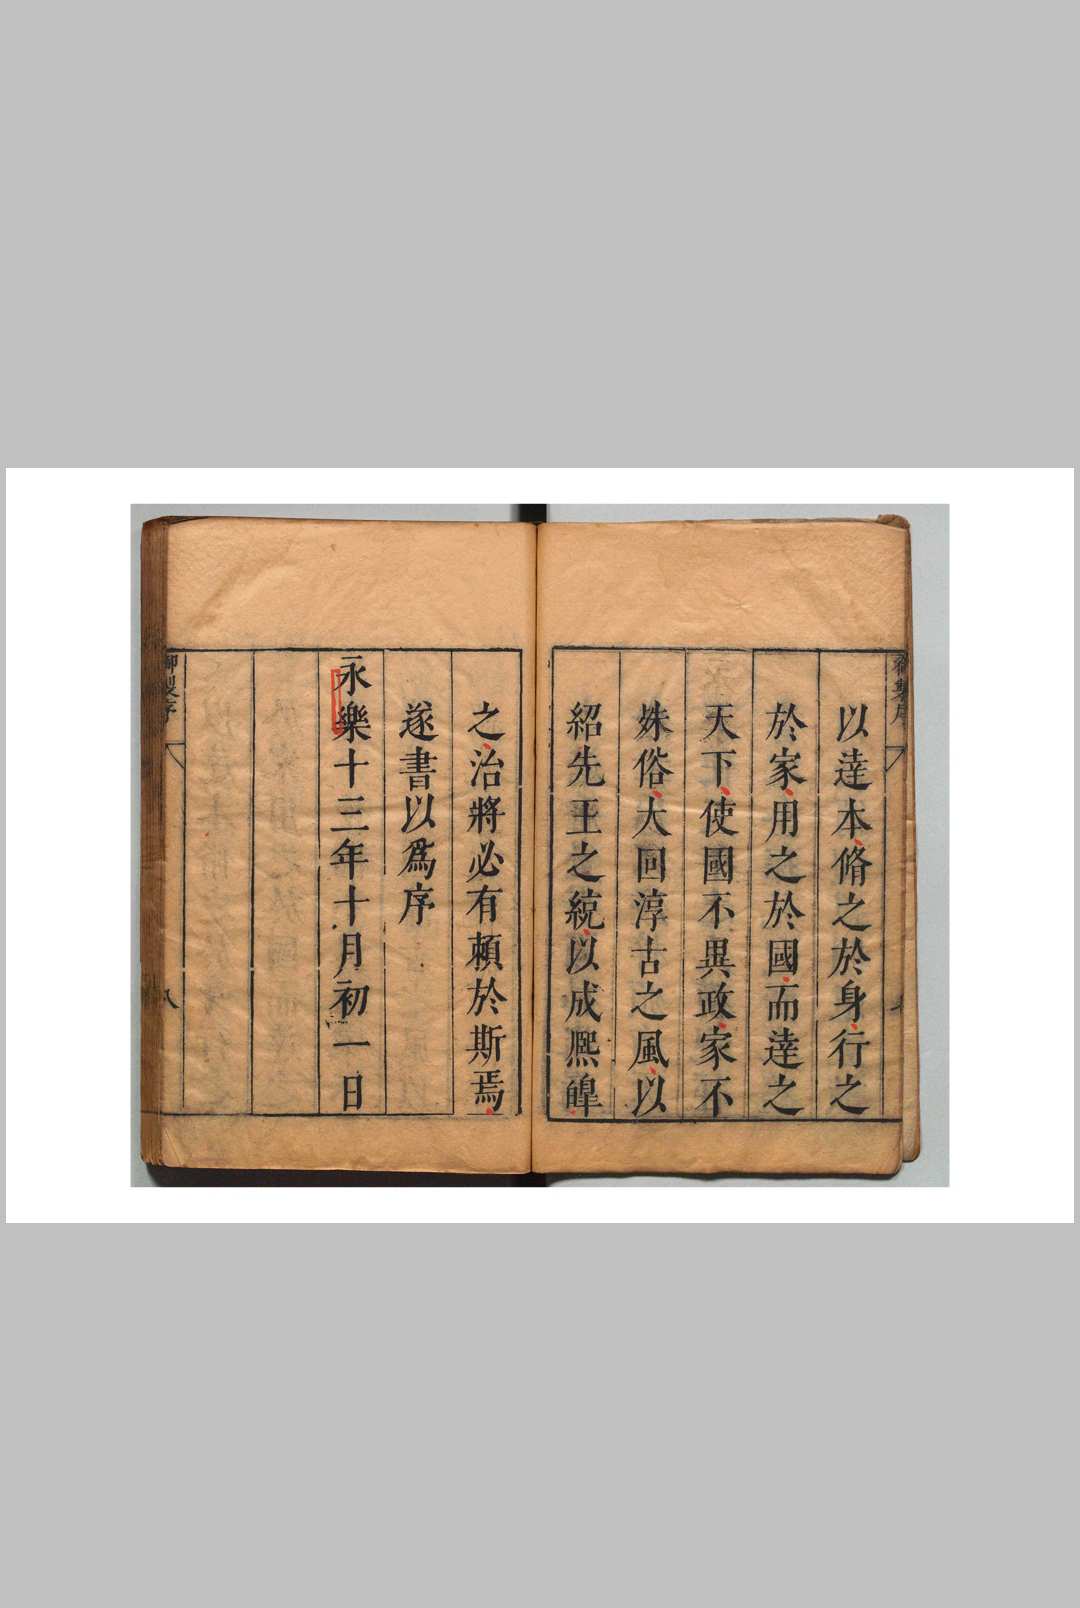 以達本脩之於身行之
於家用之於國而達之
天下使國不異政家不
殊俗大回淳古之風以
紹先王之統以成熈皡
之治將必有頼於斯焉
遂書以爲序
永樂十三年十月初一日
御製序
八